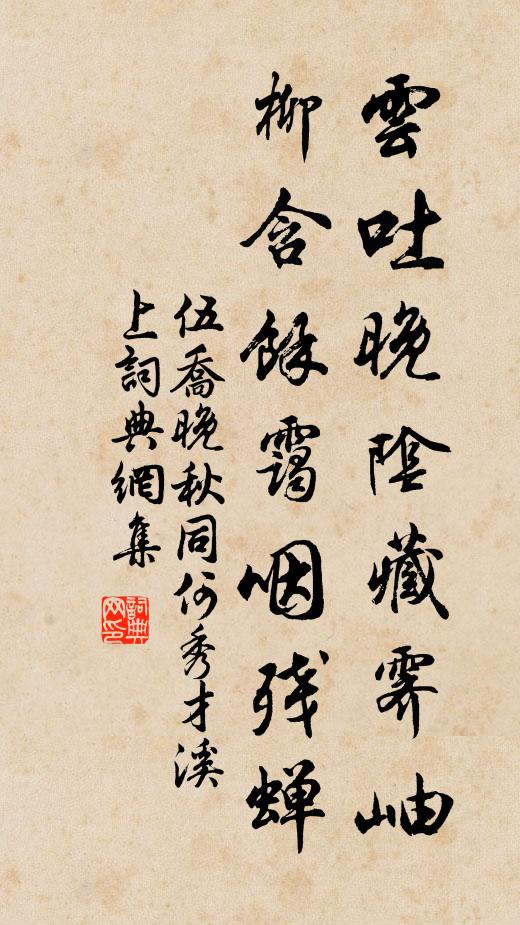 雲吐晚陰藏霽岫
柳含餘靄咽残蝉
伍喬晚秋同何秀才溪
上詞典網集
詞典网印